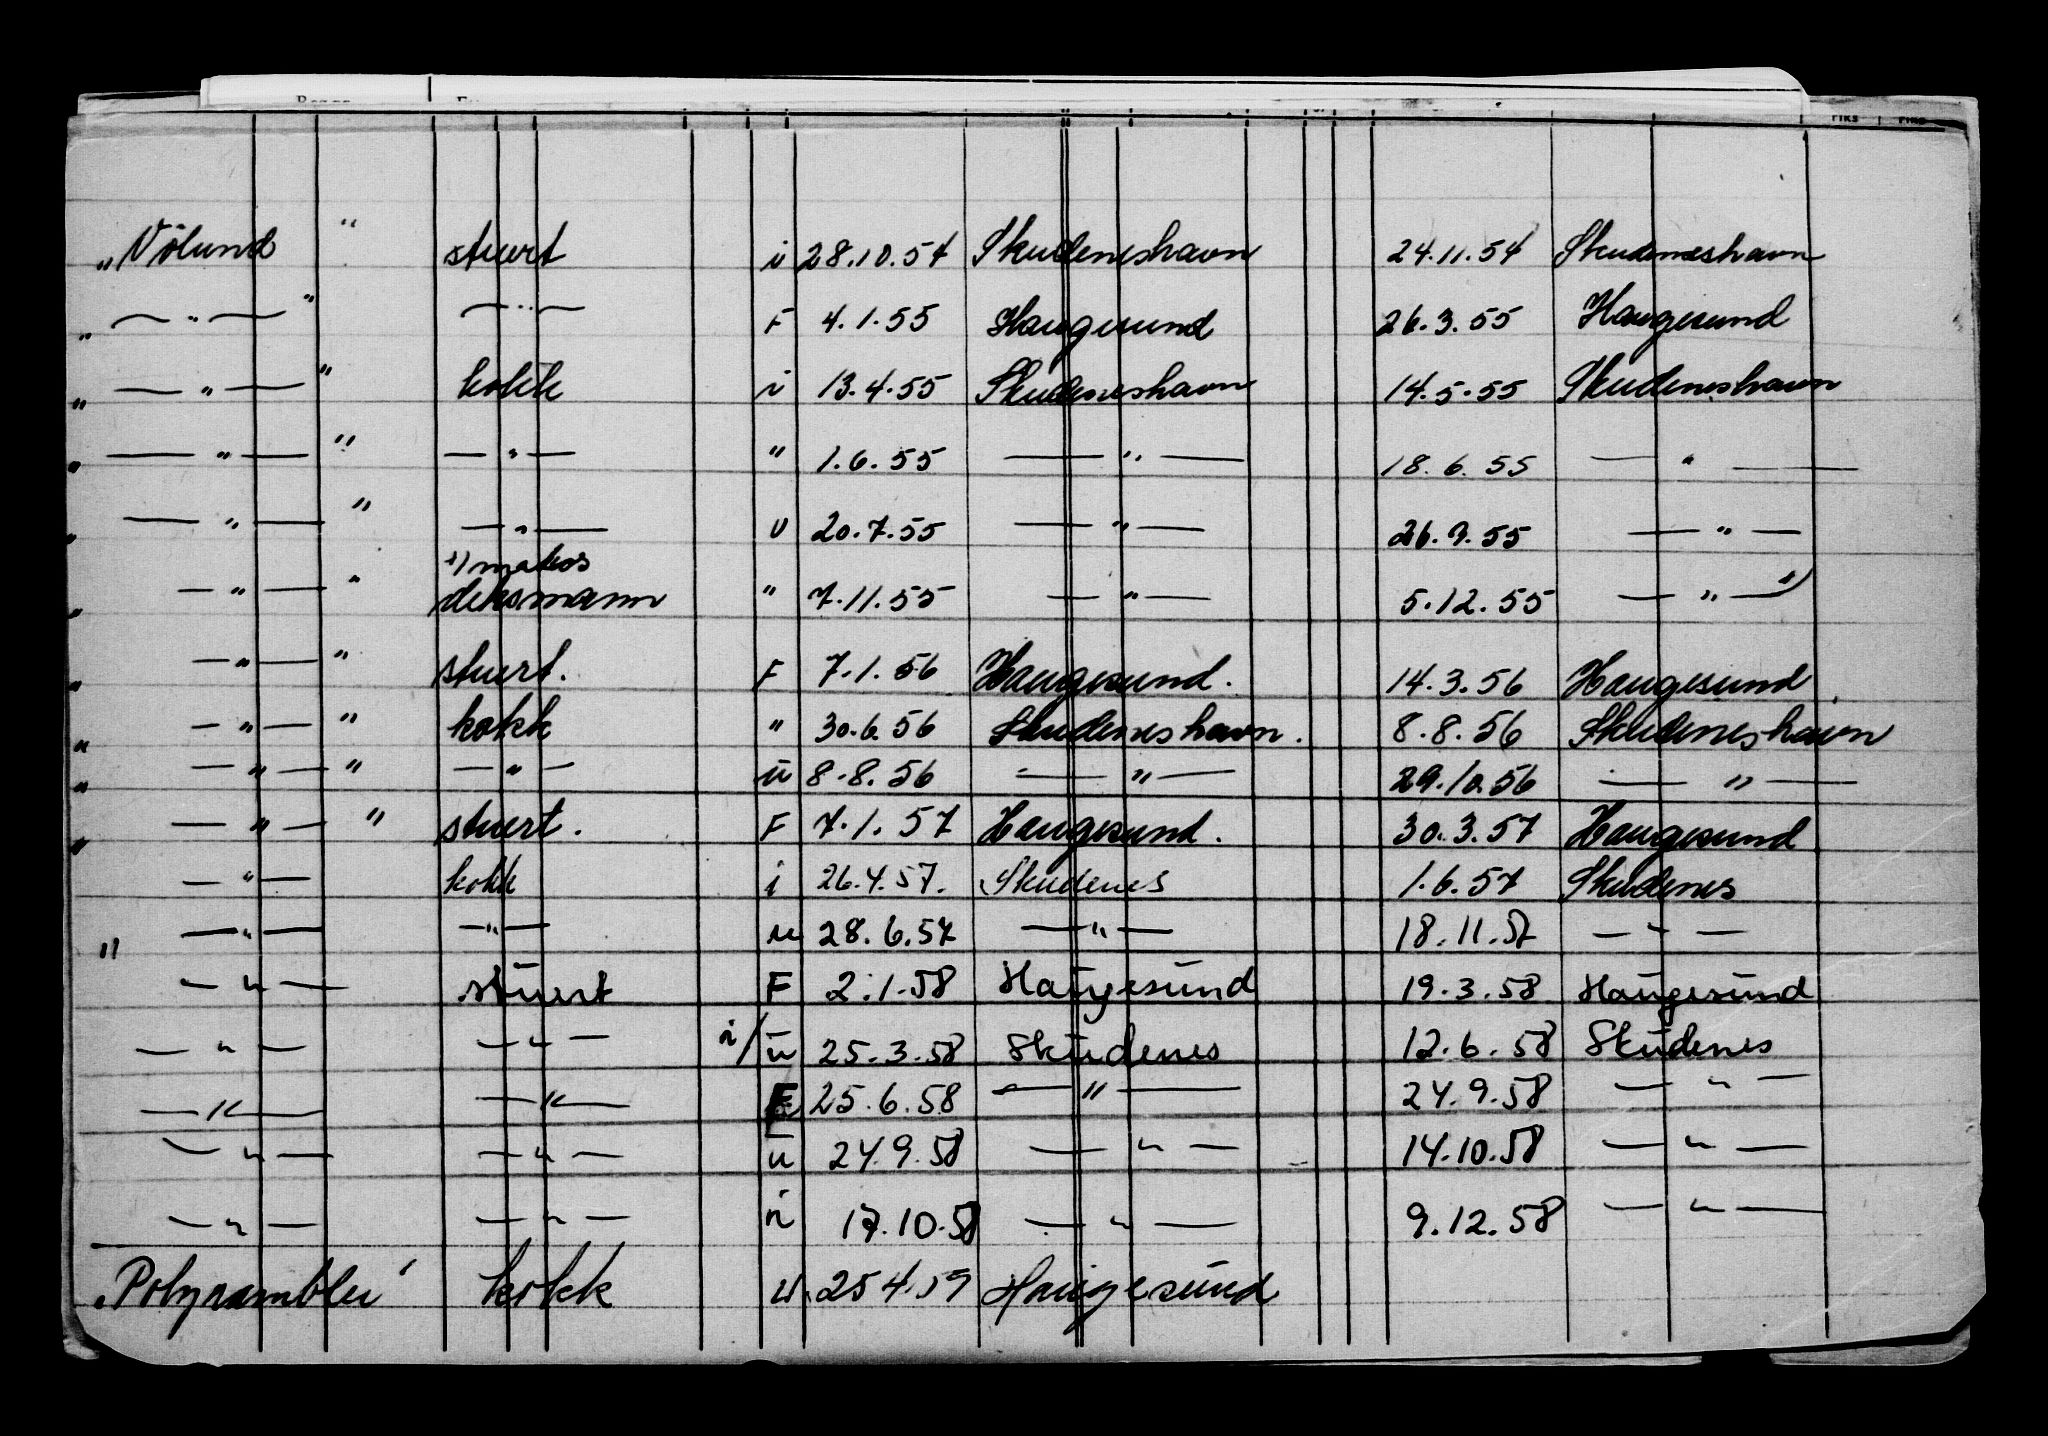 Fiks Fiks
„Vólund " stuert i 28.10.54 Skudeneshavn 24.11.54 Skudeneshavn
„ — " — " — " — F 4.1.55 Haugesund 26.3.55 Haugesund
" — " — " kokk i 13.4.55 Skudeneshavn 14.5.55 Skudeneshavn
" — " — " — " — " 1.6.55 — " — 18.6.55 — " —
" — " — " — " — U 20.7.55 — " — 26.9.55 — " —
") matros
" — " — " deksmann " 7.11.55 — " — 5.12.55 — " — ")
" — " — " stuert. F 7.1.56 Haugesund. 14.3.56 Haugesund
" — " — " kokk " 30.6.56 Skudeneshavn. 8.8.56 Skudeneshavn
" — " — " — " — ū 8.8.56 — " — 29.10.56 — " —
" — " — " stuert. F 7.1.57 Haugesund. 30.3.57 Haugesund
— " — kokk i 26.4.57. Skudenes 1.6.57 Skudenes
" — " — — " — u 28.6.57 — " — 18.11.57 — " —
— " — stūert F 2.1.58 Haūgesūnd 19.3.58 Haūgesūnd
— " — — " — i/ū 25.3.58 Skūdenes 12.6.58 Skūdenes
— " — — " — F 25.6.58 — " — 24.9.58 — " —
— " — — " — ū 24.9.58 — " — 14.10.58 — " —
— " — — " — i 17.10.58 — " — 9.12.58 — " —
kokk U. 25 4.59 Haūgesūnd